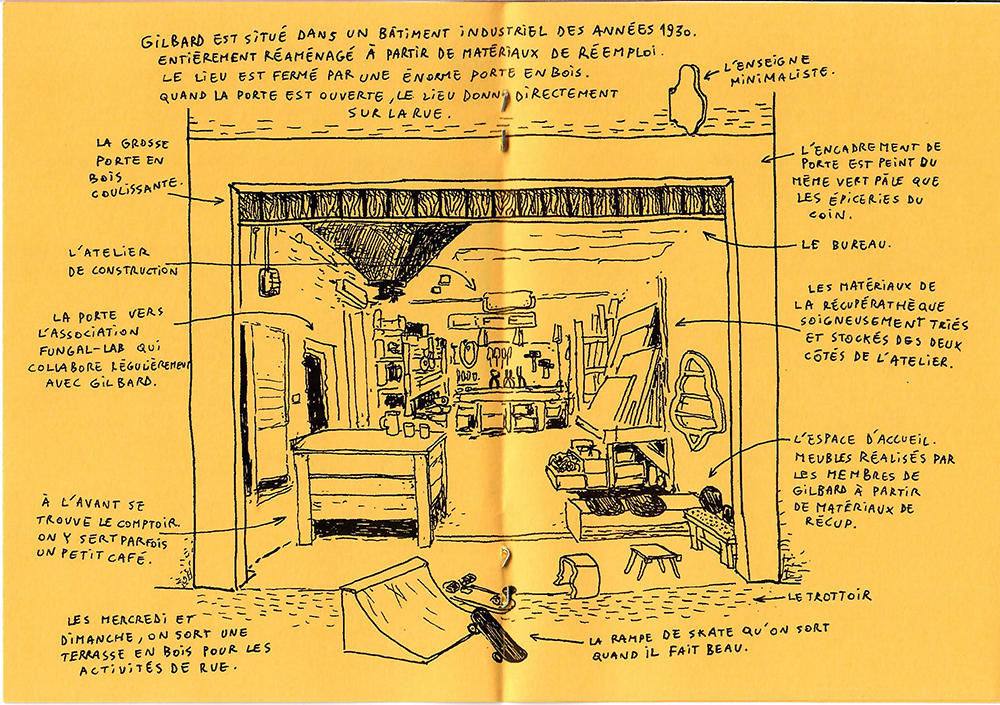 GILBARD EST SITUÉ DANS UN BÂTIMENT INDUSTRIEL DES ANNÉES 1930.
ENTIÈREMENT RÉAMÉNAGÉ À PARTIR DE MATÉRIAUX DE RÉEMPLOI.
LE LIEU EST FERMÉ PAR UNE ÉNORME PORTE EN BOIS.
QUAND LA PORTE EST OUVERTE, LE LIEU DONNE DIRECTEMENT
SUR LA RUE.
L'ENSEIGNE
MINIMALISTE.
LA GROSSE
PORTE EN
BOIS
COULISSANTE.
L'ENCADREMENT DE
PORTE EST PEINT DU
MÊME VERT PÂLE QUE
LES ÉPICERIES DU
COIN.
L'ATELIER
DE CONSTRUCTION
LE BUREAU.
LA PORTE VERS
L'ASSOCIATION
FUNGAL-LAB QUI
COLLABORE RÉGULIÈREMENT
AVEC GILBARD.
LES MATÉRIAUX DE
LA RÉCUPÉRATHÈQUE
SOIGNEUSEMENT TRIÉS
ET STOCKÉS DES DEUX
CÔTÉS DE L'ATELIER.
À L'AVANT SE
TROUVE LE COMPTOIR.
ON Y SERT PARFOIS
UN PETIT CAFÉ.
L'ESPACE D'ACCUEIL.
MEUBLES RÉALISÉS PAR
LES MEMBRES DE
GILBARD À PARTIR
DE MATÉRIAUX DE
RÉCUP.
LE TROTTOIR
LES MERCREDI ET
DIMANCHE, ON SORT UNE
TERRASSE EN BOIS POUR LES
ACTIVITÉS DE RUE.
LA RAMPE DE SKATE QU'ON SORT
QUAND IL FAIT BEAU.